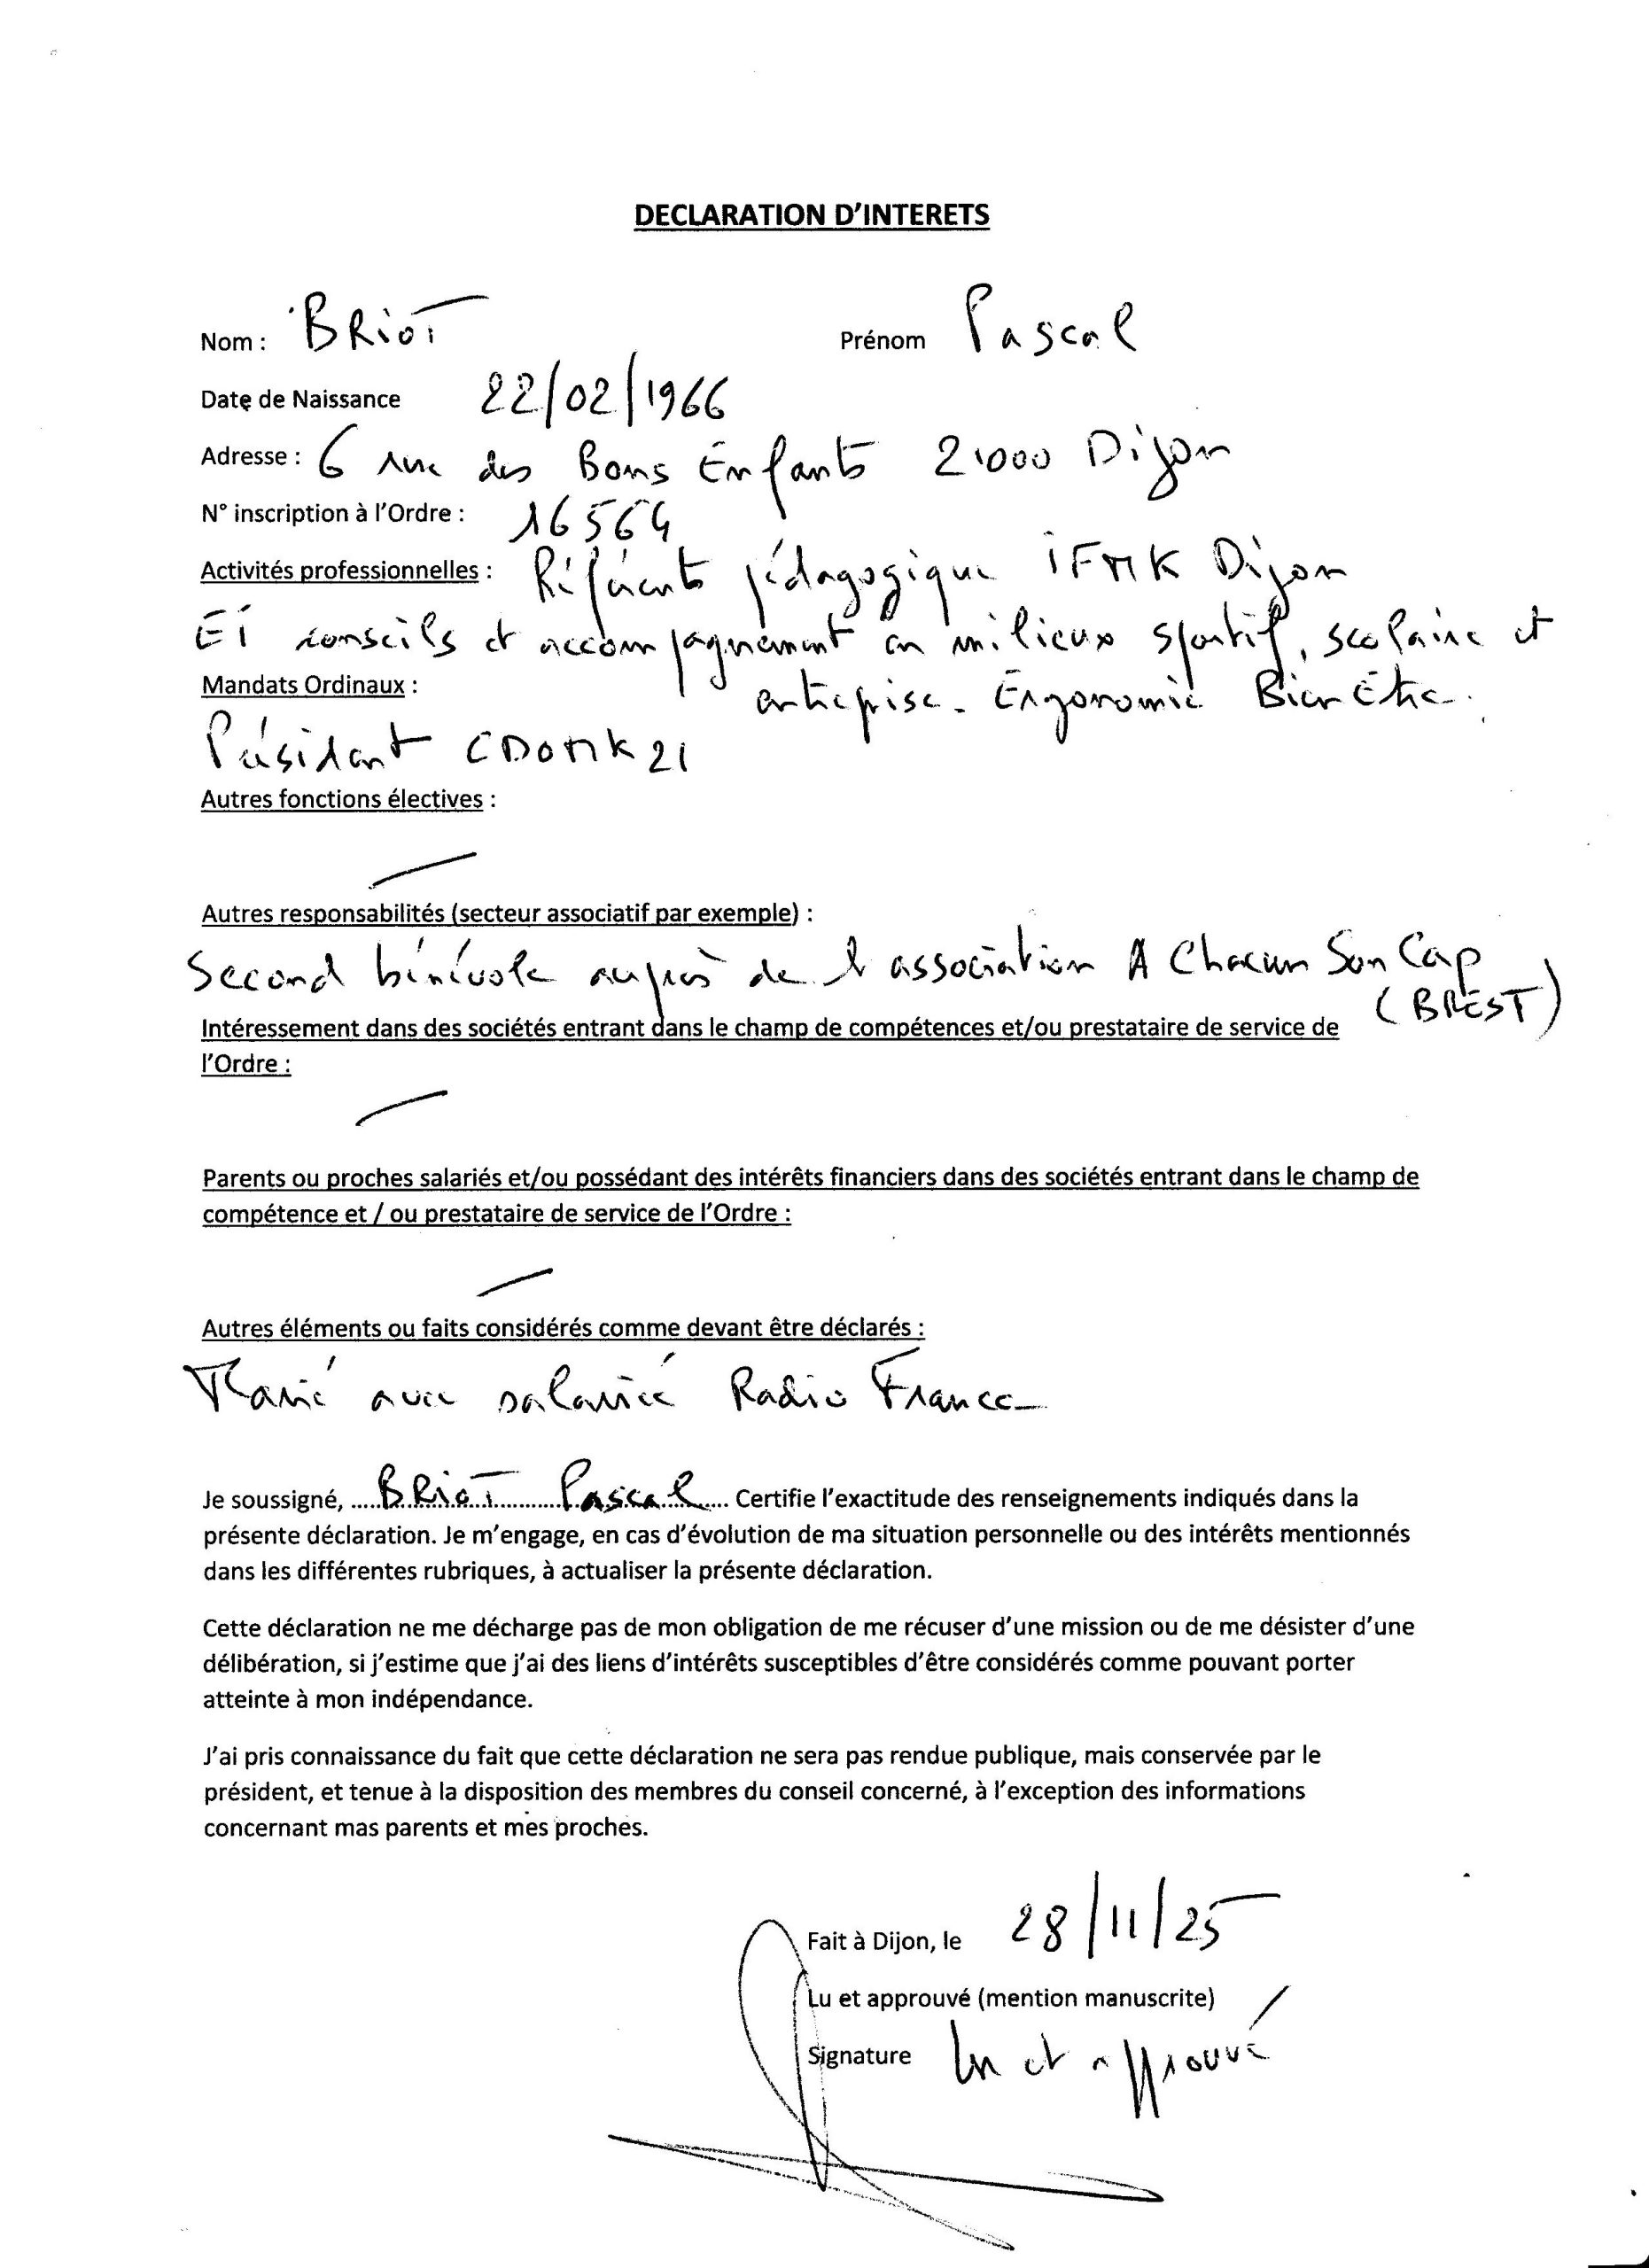 DECLARATION D'INTERETS
Nom : BRIOT Prénom Pascal
Date de Naissance 22/02/1966
Adresse : 6 rue des Bons Enfants 21000 Dijon
N° inscription à l'Ordre : 16564
Activités professionnelles : Référent pédagogique IFMK Dijon
EI conseils et accompagnement en milieux sportif, scolaire et
entreprise. Ergonomie Bien Etre.
Mandats Ordinaux :
Président CDOMK 21
Autres fonctions électives :
Autres responsabilités (secteur associatif par exemple) :
Second bénévole auprès de l'association A Chacun Son Cap
(BREST)
Intéressement dans des sociétés entrant dans le champ de compétences et/ou prestataire de service de
l'Ordre :
Parents ou proches salariés et/ou possédant des intérêts financiers dans des sociétés entrant dans le champ de
compétence et / ou prestataire de service de l'Ordre :
Autres éléments ou faits considérés comme devant être déclarés :
Marié avec salariée Radio France
Je soussigné, ..... BRIOT Pascal .... Certifie l'exactitude des renseignements indiqués dans la
présente déclaration. Je m'engage, en cas d'évolution de ma situation personnelle ou des intérêts mentionnés
dans les différentes rubriques, à actualiser la présente déclaration.
Cette déclaration ne me décharge pas de mon obligation de me récuser d'une mission ou de me désister d'une
délibération, si j'estime que j'ai des liens d'intérêts susceptibles d'être considérés comme pouvant porter
atteinte à mon indépendance.
J'ai pris connaissance du fait que cette déclaration ne sera pas rendue publique, mais conservée par le
président, et tenue à la disposition des membres du conseil concerné, à l'exception des informations
concernant mas parents et mes proches.
Fait à Dijon, le 28/11/25
Lu et approuvé (mention manuscrite)
Signature lu et approuvé